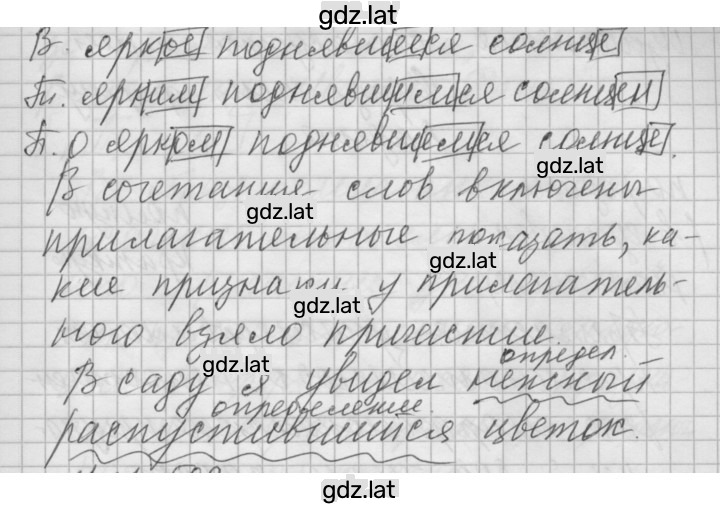 gdz.lat
В. яркое поднявшееся солнце
Тв. ярким поднявшимся солнцем
П. о ярком поднявшемся солнце.
gdz.lat
В сочетания слов включены
gdz.lat
прилагательные показать, ка-
gdz.lat
кие признаки у прилагатель-
gdz.lat
ного взяло причастие.
gdz.lat
определ.
В саду я увидел нежный
определение.
распустившийся цветок.
gdz.lat